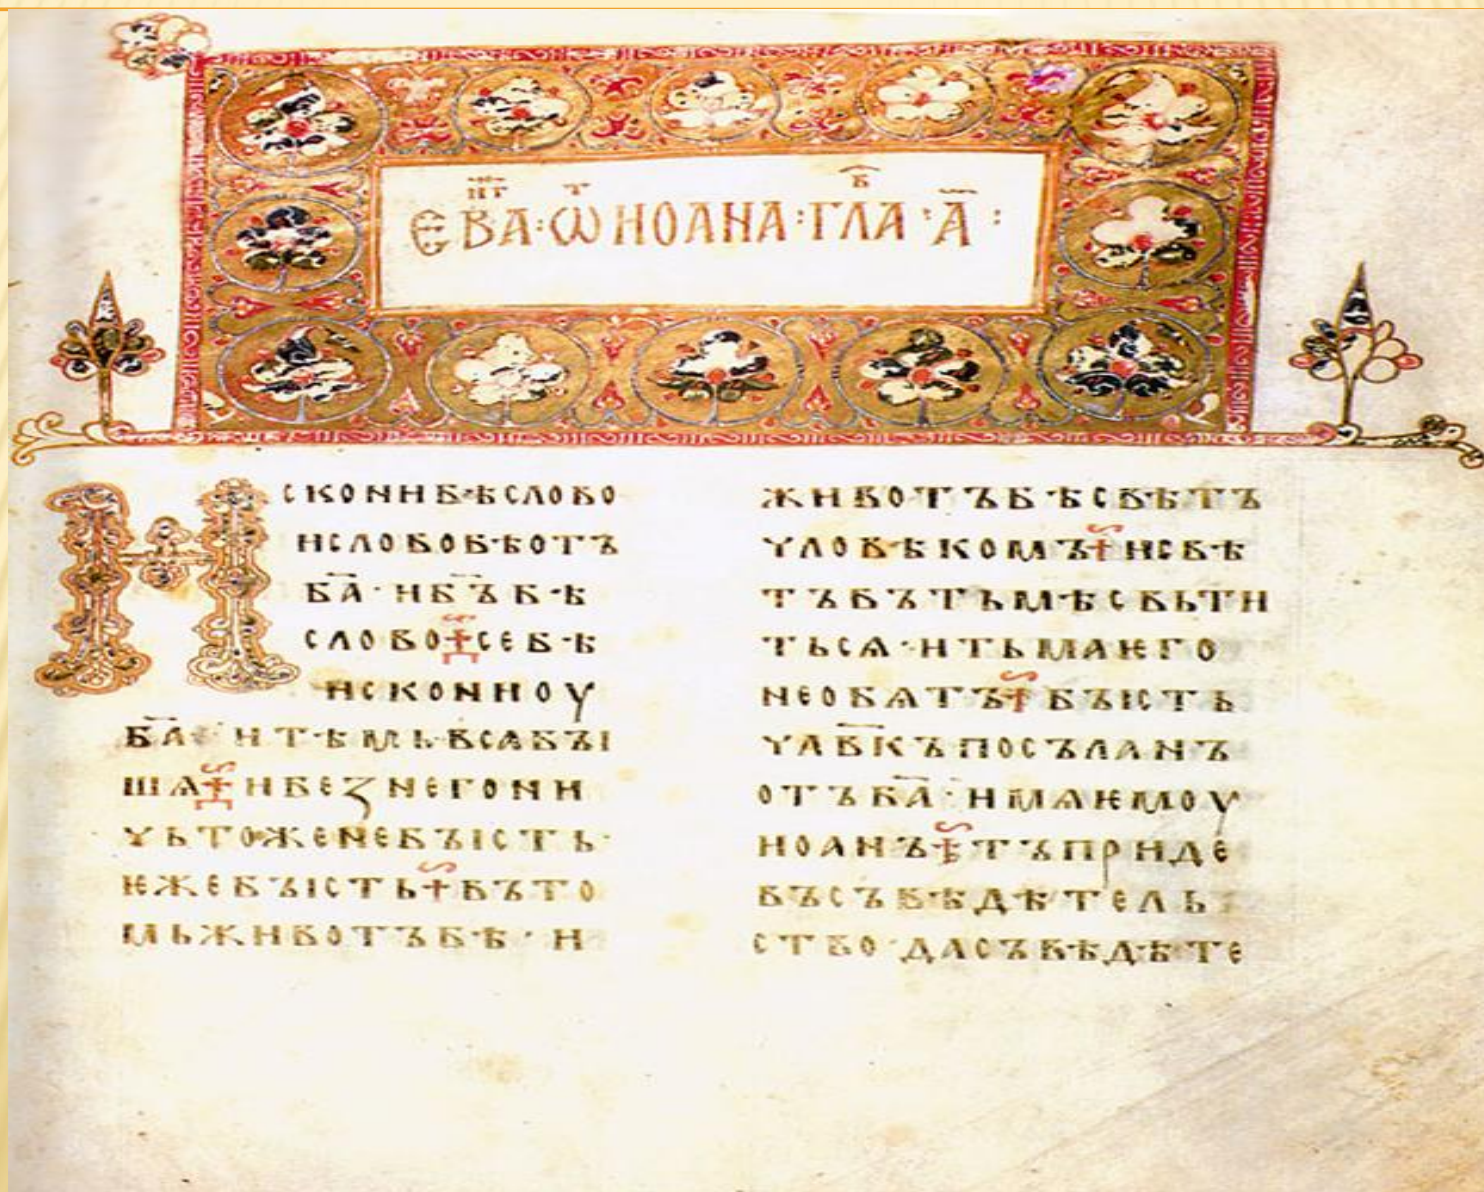 ЕВА҃НГ · Ѡ҃Т ИОАНА · ГЛА҃В · А҃ :
ИСКОНИБѢСЛОВО
ИСЛОВОБѢОТЪ
БА҃ · ИБЪ҃БѢ
СЛОВО СЕБѢ
ИСКОНИОУ
БА҃ · ИТѢМЬВСѦБЪІ
ШѦ ИБЕꙁНЕГОНИ
ЧЬТОЖЕНЕБЪІСТЬ·
ѤЖЕБЪІСТЬ ВЪТО
МЬЖИВОТЪБѢ · И
ЖИВОТЪБѢСВѢТЪ
ЧЛОВѢКОМЪ ИСВѢ
ТЪВЪТЬМѢСВЬТИ
ТЬСѦ · ИТЬМАѤГО
НЕОБѦТЪ БЪІСТЬ
ЧЛВ҃КЪПОСЪЛАНЪ
ОТЪБА҃ · ИМѦѤМОУ
ИОАНЪ ТЪПРИДЕ
ВЪСЪВѢДѢТЕЛЬ
СТВО · ДАСЪВѢДѢТЕ